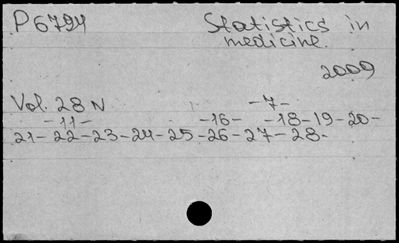 P6794 Statistics in
medicine.
2009
Vol. 28 N -7-
-11- -16- -18-19-20-
21-22-23-24-25-26-27-28-